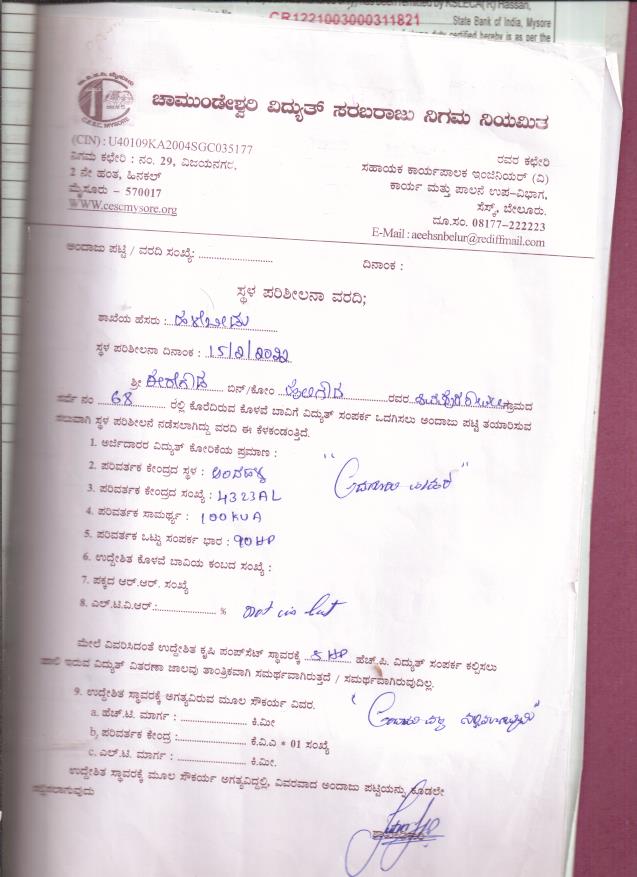 CR1221003000311821
State Bank of India, Mysore
ಚಾಮುಂಡೇಶ್ವರಿ ವಿದ್ಯುತ್ ಸರಬರಾಜು ನಿಗಮ ನಿಯಮಿತ
(CIN) : U40109KA2004SGC035177
ನಿಗಮ ಕಛೇರಿ : ನಂ. 29, ವಿಜಯನಗರ,
2 ನೇ ಹಂತ, ಹಿನಕಲ್
ಮೈಸೂರು – 570017
WWW.cescmysore.org
ರವರ ಕಛೇರಿ
ಸಹಾಯಕ ಕಾರ್ಯಪಾಲಕ ಇಂಜಿನಿಯರ್ (ವಿ)
ಕಾರ್ಯ ಮತ್ತು ಪಾಲನೆ ಉಪ-ವಿಭಾಗ,
ಸೆಸ್ಕ್, ಬೇಲೂರು.
ದೂ.ಸಂ. 08177-222223
E-Mail : aeehsnbelur@rediffmail.com
ಅಂದಾಜು ಪಟ್ಟಿ / ವರದಿ ಸಂಖ್ಯೆ: ........................
ದಿನಾಂಕ :
ಸ್ಥಳ ಪರಿಶೀಲನಾ ವರದಿ;
ಶಾಖೆಯ ಹೆಸರು : ಹಳೇಬೀಡು
ಸ್ಥಳ ಪರಿಶೀಲನಾ ದಿನಾಂಕ :
ಶ್ರೀ ಬಿನ್/ಕೋಂ ರವರ ಗ್ರಾಮದ
ಸರ್ವೆ ನಂ 68 ರಲ್ಲಿ ಕೊರೆದಿರುವ ಕೊಳವೆ ಬಾವಿಗೆ ವಿದ್ಯುತ್ ಸಂಪರ್ಕ ಒದಗಿಸಲು ಅಂದಾಜು ಪಟ್ಟಿ ತಯಾರಿಸುವ
ಸಲುವಾಗಿ ಸ್ಥಳ ಪರಿಶೀಲನೆ ನಡೆಸಲಾಗಿದ್ದು ವರದಿ ಈ ಕೆಳಕಂಡಂತ್ತಿದೆ.
1. ಅರ್ಜಿದಾರರ ವಿದ್ಯುತ್ ಕೋರಿಕೆಯ ಪ್ರಮಾಣ :
2. ಪರಿವರ್ತಕ ಕೇಂದ್ರದ ಸ್ಥಳ :
3. ಪರಿವರ್ತಕ ಕೇಂದ್ರದ ಸಂಖ್ಯೆ : 4323AL
4. ಪರಿವರ್ತಕ ಸಾಮರ್ಥ್ಯ : 100KVA
5. ಪರಿವರ್ತಕ ಒಟ್ಟು ಸಂಪರ್ಕ ಭಾರ : 90HP
6. ಉದ್ದೇಶಿತ ಕೊಳವೆ ಬಾವಿಯ ಕಂಬದ ಸಂಖ್ಯೆ :
7. ಪಕ್ಕದ ಆರ್.ಆರ್. ಸಂಖ್ಯೆ
8. ಎಲ್.ಟಿ.ವಿ.ಆರ್.:.................... % Not in list
ಮೇಲೆ ವಿವರಿಸಿದಂತೆ ಉದ್ದೇಶಿತ ಕೃಷಿ ಪಂಪ್‌ಸೆಟ್ ಸ್ಥಾವರಕ್ಕೆ 5 HP ಹೆಚ್.ಪಿ. ವಿದ್ಯುತ್ ಸಂಪರ್ಕ ಕಲ್ಪಿಸಲು
ಹಾಲಿ ಇರುವ ವಿದ್ಯುತ್ ವಿತರಣಾ ಜಾಲವು ತಾಂತ್ರಿಕವಾಗಿ ಸಮರ್ಥವಾಗಿರುತ್ತದೆ / ಸಮರ್ಥವಾಗಿರುವುದಿಲ್ಲ.
9. ಉದ್ದೇಶಿತ ಸ್ಥಾವರಕ್ಕೆ ಅಗತ್ಯವಿರುವ ಮೂಲ ಸೌಕರ್ಯ ವಿವರ.
a. ಹೆಚ್.ಟಿ. ಮಾರ್ಗ : ...................... ಕಿ.ಮೀ
b. ಪರಿವರ್ತಕ ಕೇಂದ್ರ : ...................... ಕೆ.ವಿ.ಎ * 01 ಸಂಖ್ಯೆ
c. ಎಲ್.ಟಿ. ಮಾರ್ಗ : ...................... ಕಿ.ಮೀ.
ಉದ್ದೇಶಿತ ಸ್ಥಾವರಕ್ಕೆ ಮೂಲ ಸೌಕರ್ಯ ಅಗತ್ಯವಿದ್ದಲ್ಲಿ, ವಿವರವಾದ ಅಂದಾಜು ಪಟ್ಟಿಯನ್ನು ಕೂಡಲೇ